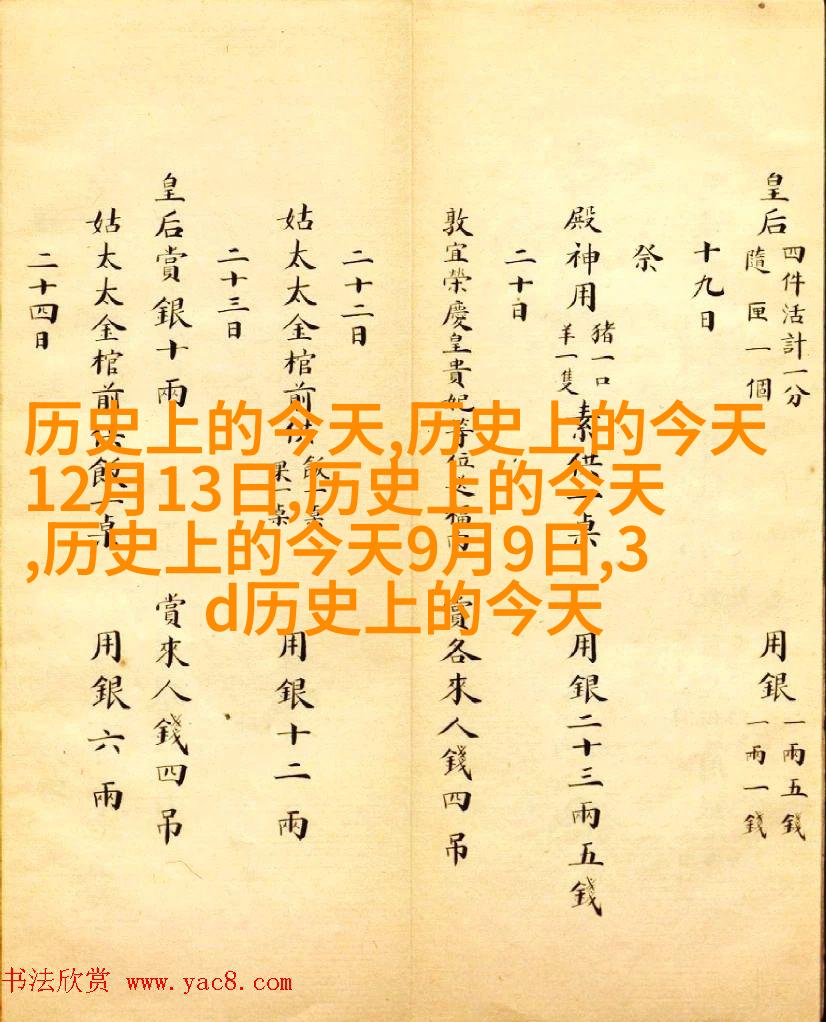 皇后 四件活計一分 隨匣一個 用銀 一兩五錢 一兩一錢
十九日
祭
殿神用 猪一口 羊一隻 素供一桌 用銀二十三兩五錢
二十日
敦宜榮慶皇貴妃等位 賞各來人錢四吊
二十二日
姑太太金棺前供 飯一桌 果一桌 用銀十二兩
二十三日
皇后賞銀十兩 賞來人錢四吊
姑太太金棺前供飯一桌 用銀六兩
二十四日
历史上的今天,历史上的今天
12月13日,历史上的今天
,历史上的今天9月9日,3
d历史上的今天
书法欣赏 www.yac8.com